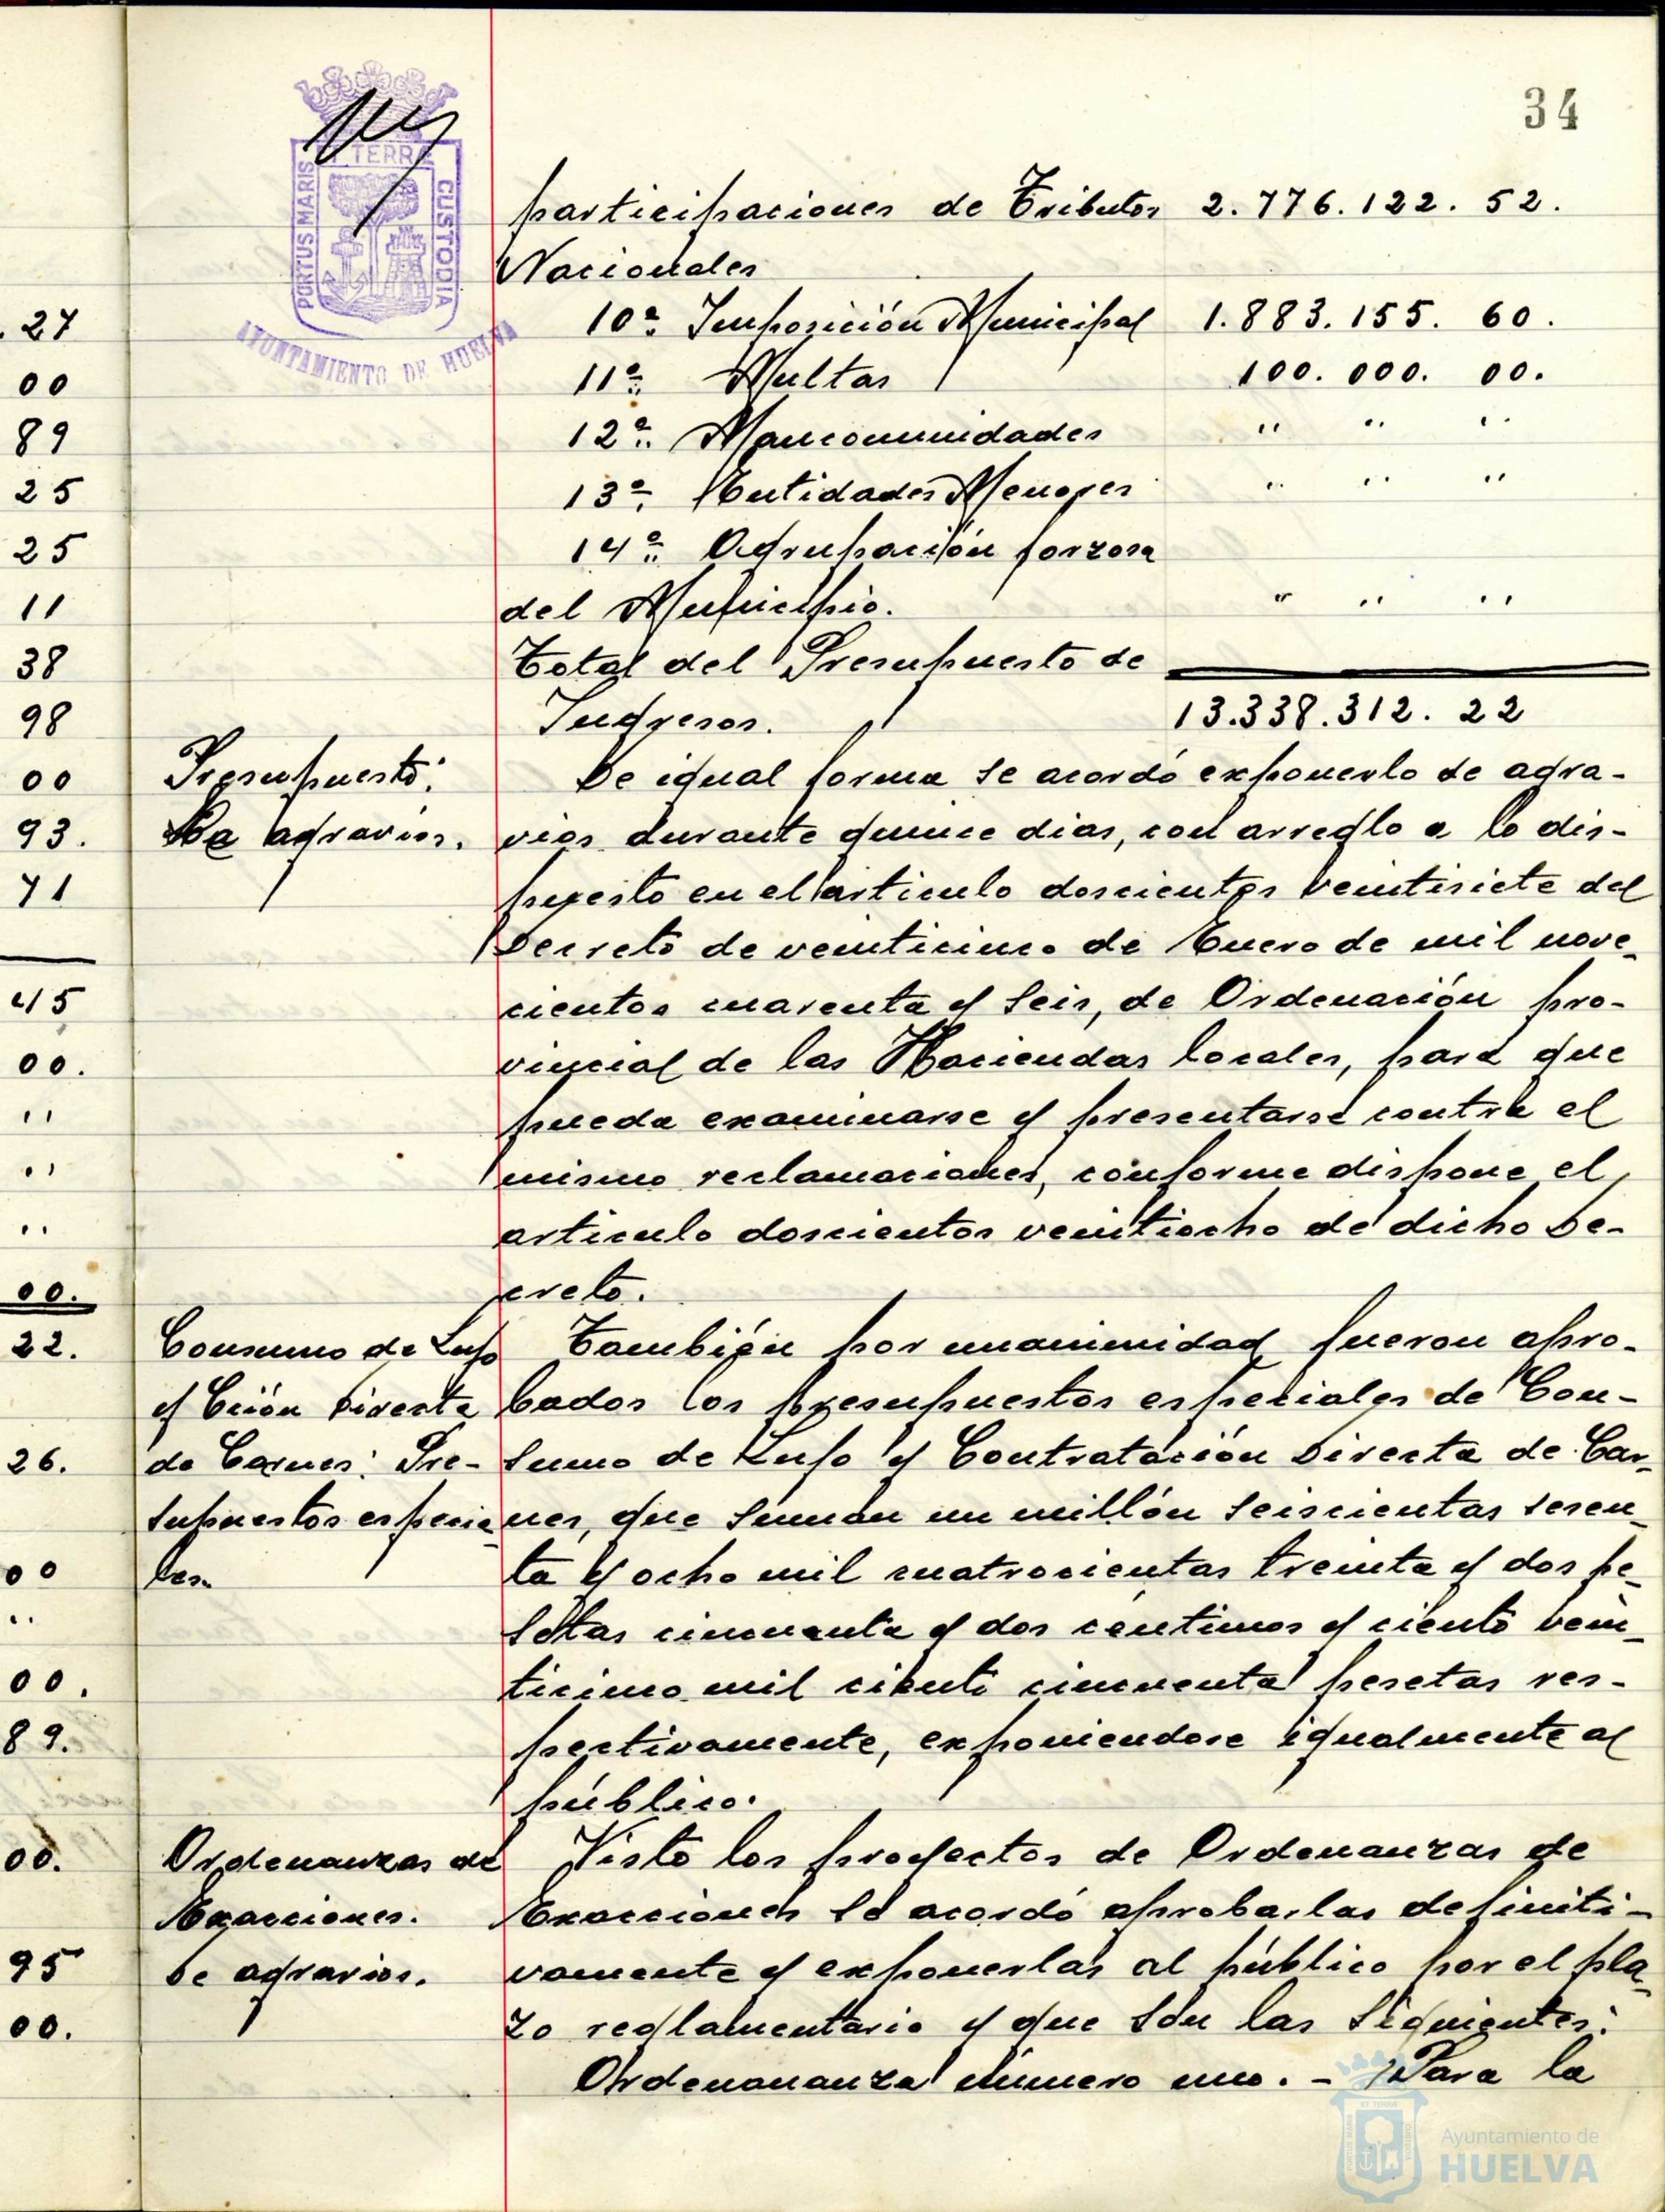 34
PORTUS MARIS
ET TERRÆ
CUSTODIA
AYUNTAMIENTO DE HUELVA
participaciones de Tributos 2.776.122. 52.
Nacionales
10ª. Imposición Municipal 1.883.155. 60.
11ª. Multas 100.000. 00.
12ª. Mancomunidades " " "
13ª. Entidades Menores " " "
14ª. Agrupación forzosa
del Municipio. " " "
Total del Presupuesto de
Ingresos. 13.338.312. 22
Presupuesto:
De agravios.
De igual forma se acordó exponerlo de agra-
vios durante quince dias, con arreglo a lo dis-
puesto en el articulo doscientos veintisiete del
Decreto de veinticinco de Enero de mil nove-
cientos cuarenta y seis, de Ordenación pro-
vincial de las Haciendas locales, para que
pueda examinarse y presentarse contra el
mismo reclamaciones, conforme dispone el
articulo doscientos veintiocho de dicho De-
creto.
Consumo de Lujo
y Cción Directa
de Carnes: Pre-
supuestos especia-
les.
También por unanimidad fueron apro-
bados los presupuestos especiales de Con-
sumo de Lujo y Contratación Directa de Car-
nes, que suman un millón seiscientas sesen-
ta y ocho mil cuatrocientas treinta y dos pe-
setas cincuenta y dos centimos y ciento vein-
ticinco mil ciento cincuenta pesetas res-
pectivamente, exponiendose igualmente al
público.
Ordenanzas de
Exacciones.
De agravios.
Visto los proyectos de Ordenanzas de
Exacciones se acordó aprobarlas definiti-
vamente y exponerlas al público por el pla-
zo reglamentario y que son las siguientes:
Ordenananza número uno. - Para la
. 27
00
89
25
25
11
38
98
00
93.
71
45
00.
"
"
"
00.
22.
26.
00
"
00.
89.
00.
95
00.
Ayuntamiento de
HUELVA